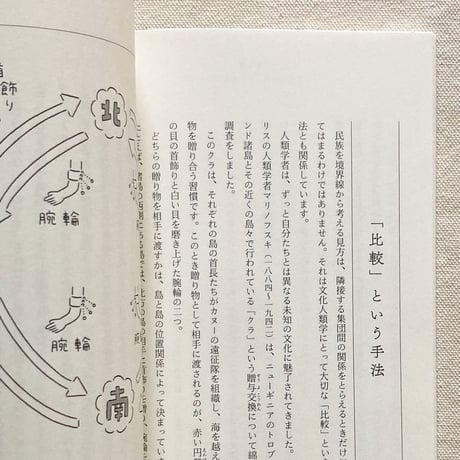 「比較」という手法
民族を境界線から考える見方は、隣接する集団間の関係をとらえるときだけ
てはまるわけではありません。それは文化人類学にとって大切な「比較」とい
法とも関係しています。
人類学者は、ずっと自分たちとは異なる未知の文化に魅了されてきました。
リスの人類学者マリノフスキ(一八八四〜一九四二)は、ニューギニアのトロブ
ンド諸島とその近くの島々で行われている「クラ」という贈与交換について綿
調査をしました。
このクラは、それぞれの島の首長たちがカヌーの遠征隊を組織し、海を越え
物を贈り合う習慣です。このとき贈り物として相手に渡されるのが、赤い円
の貝の首飾りと白い貝を磨き上げた腕輪の二つ。
どちらの贈り物を相手に渡すかは、島と島の位置関係によって決まってい
北
腕輪
腕輪
南
飾り